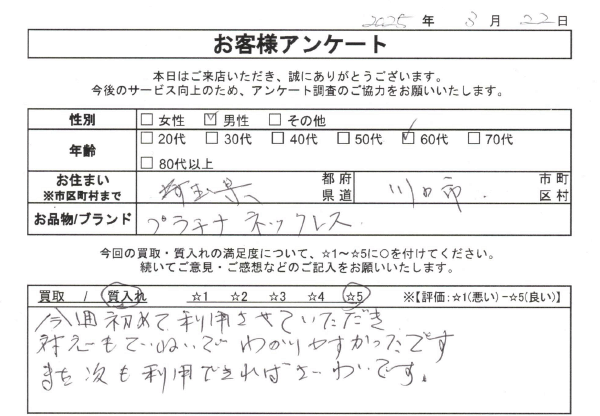 2025 年 3 月 22 日
お客様アンケート
本日はご来店いただき、誠にありがとうございます。
今後のサービス向上のため、アンケート調査のご協力をお願いいたします。
性別 □ 女性 ☑ 男性 □ その他
年齢 □ 20代 □ 30代 □ 40代 □ 50代 ☑ 60代 □ 70代
□ 80代以上
お住まい ※市区町村まで 埼玉県 都府道県 川口市 市町区村
お品物/ブランド プラチナ ネックレス
今回の買取・質入れの満足度について、☆1～☆5に○を付けてください。
続いてご意見・ご感想などのご記入をお願いいたします。
買取 / 質入れ ☆1 ☆2 ☆3 ☆4 ☆5 ※【評価:☆1(悪い)－☆5(良い)】
今週初めて利用させていただき
対応もていねいでわかりやすかったです
また次も利用できればさいわいです。